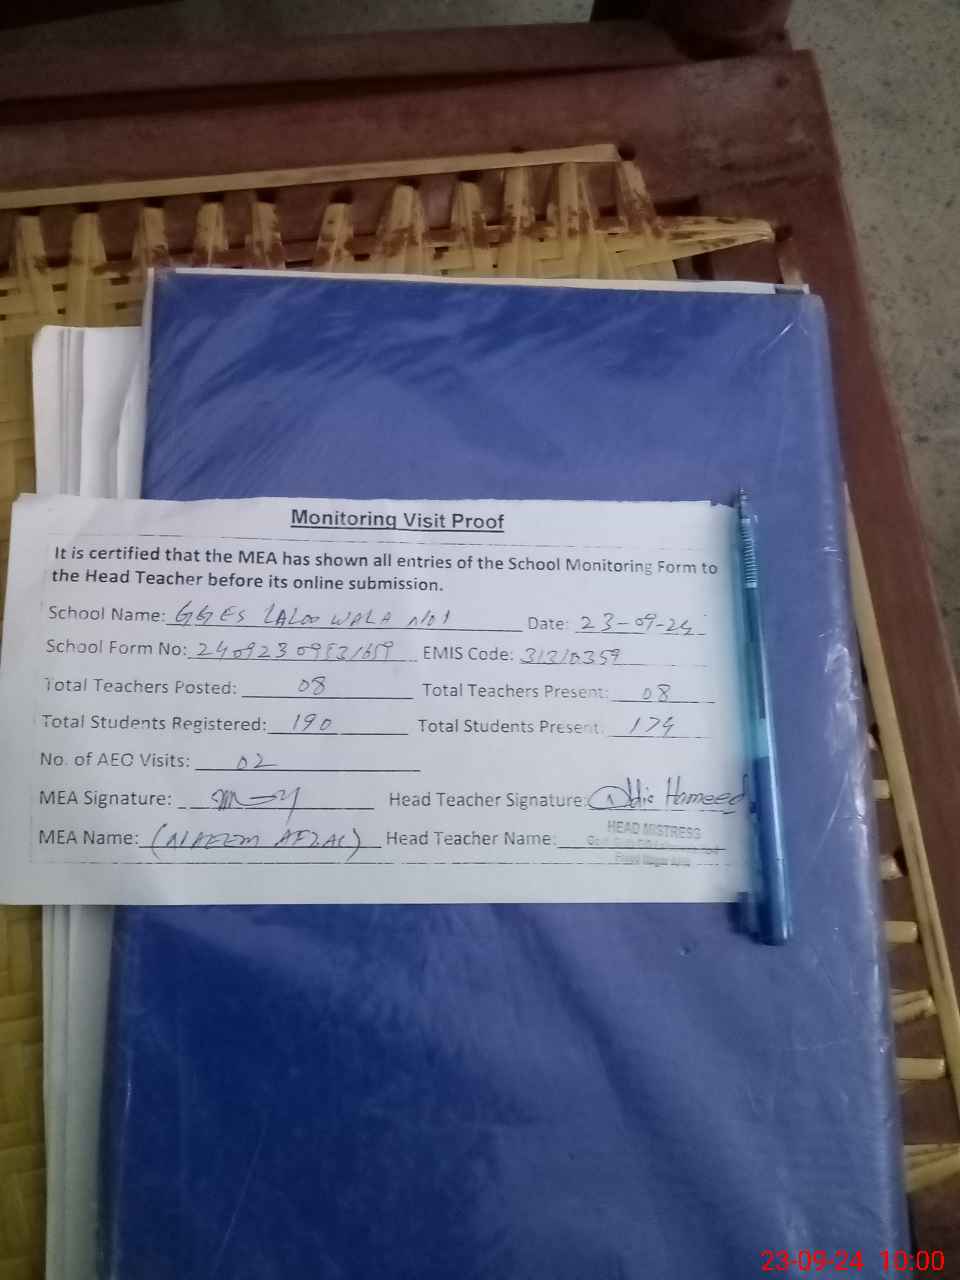 Monitoring Visit Proof
It is certified that the MEA has shown all entries of the School Monitoring Form to
the Head Teacher before its online submission.
School Name: GGES LALOO WALA NO1 Date: 23-09-24
School Form No: EMIS Code: 31310359
Total Teachers Posted: 08 Total Teachers Present: 08
Total Students Registered: 190 Total Students Present: 174
No. of AEO Visits: 02
MEA Signature: Head Teacher Signature: Hameed
MEA Name: (NAEEM AFZAL) Head Teacher Name:
HEAD MISTRESS
23-09-24 10:00